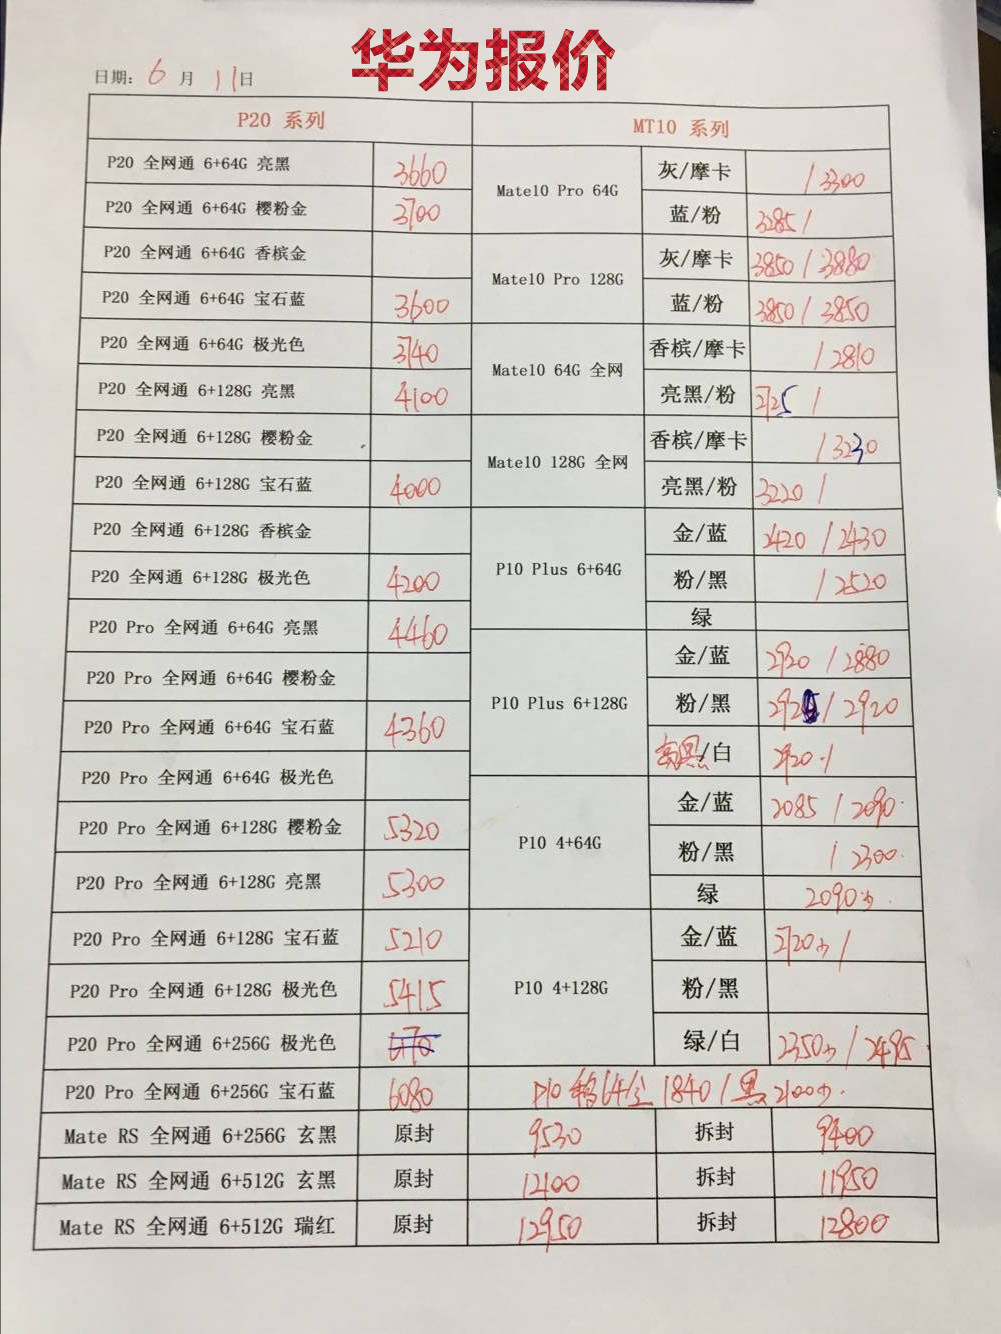 华为报价
日期: 6 月 11 日
P20 系列
P20 全网通 6+64G 亮黑 3660
P20 全网通 6+64G 樱粉金 3700
P20 全网通 6+64G 香槟金
P20 全网通 6+64G 宝石蓝 3600
P20 全网通 6+64G 极光色 3740
P20 全网通 6+128G 亮黑 4100
P20 全网通 6+128G 樱粉金
P20 全网通 6+128G 宝石蓝 4000
P20 全网通 6+128G 香槟金
P20 全网通 6+128G 极光色 4200
P20 Pro 全网通 6+64G 亮黑 4460
P20 Pro 全网通 6+64G 樱粉金
P20 Pro 全网通 6+64G 宝石蓝 4360
P20 Pro 全网通 6+64G 极光色
P20 Pro 全网通 6+128G 樱粉金 5320
P20 Pro 全网通 6+128G 亮黑 5300
P20 Pro 全网通 6+128G 宝石蓝 5210
P20 Pro 全网通 6+128G 极光色 5415
P20 Pro 全网通 6+256G 极光色
P20 Pro 全网通 6+256G 宝石蓝 6080
MT10 系列
Mate10 Pro 64G
灰/摩卡 / 3300
蓝/粉 3285 /
Mate10 Pro 128G
灰/摩卡 3850 / 3880
蓝/粉 3850 / 3850
Mate10 64G 全网
香槟/摩卡 / 2810
亮黑/粉 2725 /
Mate10 128G 全网
香槟/摩卡 / 3230
亮黑/粉 3220 /
P10 Plus 6+64G
金/蓝 2420 / 2430
粉/黑 / 2520
绿
P10 Plus 6+128G
金/蓝 2920 / 2880
粉/黑 / 2920
/白 2920 /
P10 4+64G
金/蓝 2085 / 2090
粉/黑 / 2300
绿 2090
P10 4+128G
金/蓝 2720 /
粉/黑
绿/白 2350 / 2495
P10 64 1840 / 黑 2100
Mate RS 全网通 6+256G 玄黑 原封 9530 拆封 9400
Mate RS 全网通 6+512G 玄黑 原封 12100 拆封 11950
Mate RS 全网通 6+512G 瑞红 原封 12950 拆封 12800